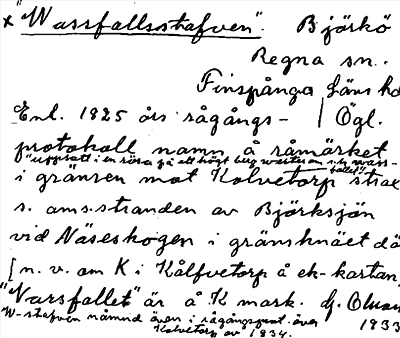 x "Wassfallsstafven". Björkö
Regna sn.
Finspånga läns hd
Enl. 1825 års rågångs- | Ögl.
protokoll namn å råmärket
"uppsatt i en rösa på ett högt berg wester om s.k. wass-
fallet"
i gränsen mot Kolvetorp strax
s. om s. stranden av Björksjön
vid Näseskogen i gränsknäet dä
[n. v. om K i Kålfvetorp å ek-kartan,
"Varsfallet" är å K mark. G.
W-stafven nämnd även i rågångsprot. över 1833
Kolvetorp av 1834.